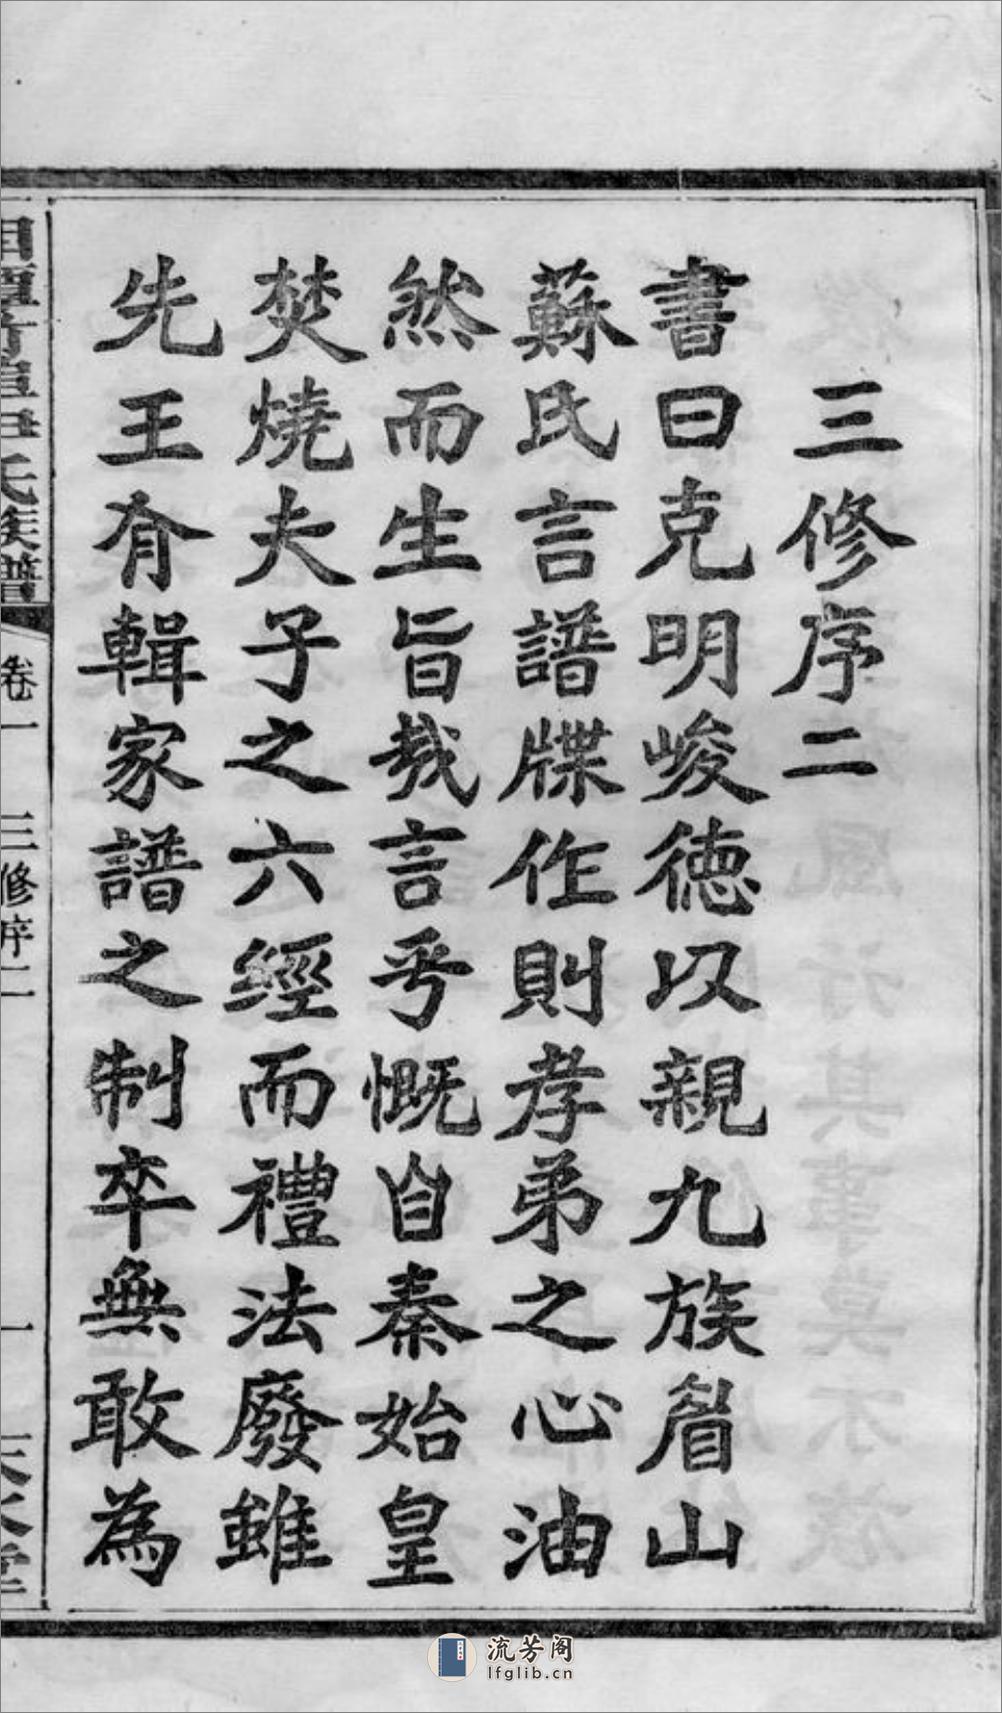 三修序二
書曰克明峻德以親九族眉山
蘇氏言譜牒作則孝弟之心油
然而生旨哉言乎慨自秦始皇
焚燒夫子之六經而禮法廢雖
先王有輯家譜之制卒無敢為
氏族譜
卷一 三修序二
一
流芳阁
lfglib.cn